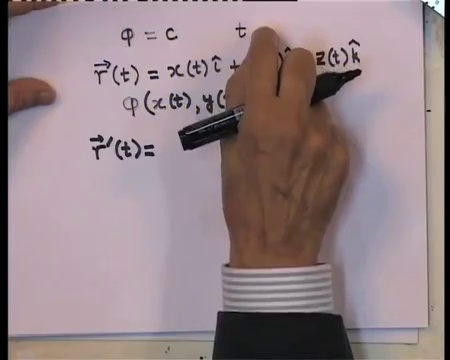 φ = c t
r⃗(t) = x(t) î + z(t) k̂
φ(x(t), y(
r⃗'(t) =